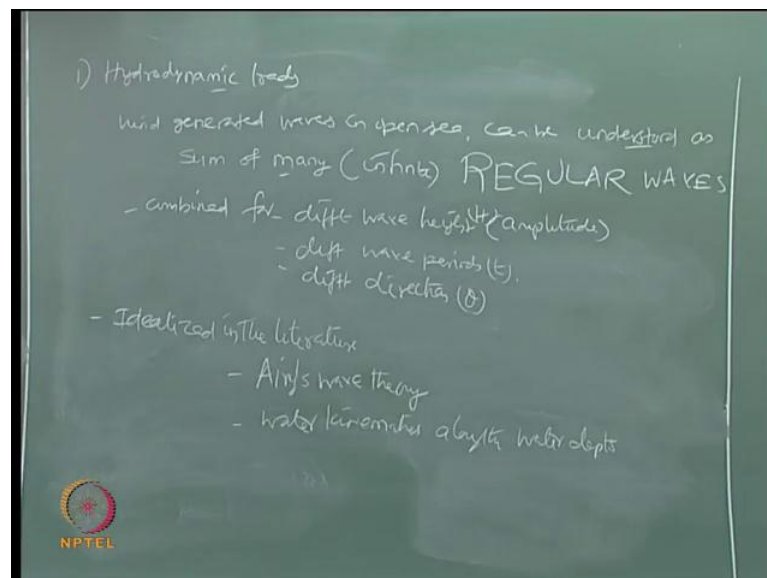 1) Hydrodynamic loads
wind generated waves in open sea, can be understood as
sum of many (infinite) REGULAR WAVES
- combined for - difft wave height (H) (amplitude)
- difft wave periods (t).
- difft direction (θ)
- Idealized in the literature
- Airy's wave theory
- water kinematics along the water depth
NPTEL